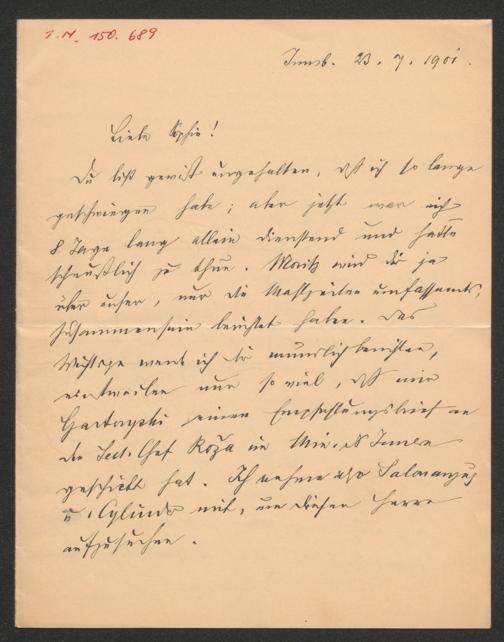 I. N. 150.689
Innsb. 23. 7. 1901.
Liebe Sophie!
Du bist gewiß ungehalten, daß ich so lange
geschwiegen habe; aber jetzt war ich
8 Tage lang allein dienstend und hatte
scheußlich zu thun. Moritz wird Dir ja
über unser, nur die Mahlzeiten umfassendes,
Zusammensein berichtet haben. Das
Wichtigste werde ich Dir mündlich berichten,
einstweilen nur so viel, daß mir
einen Empfehlungsbrief an
den Sect. Chef Roža im Min. d. Innern
geschickt hat. Ich nehme also Salonanzug
u. Cylinder mit, um diesen Herrn
aufzusuchen.